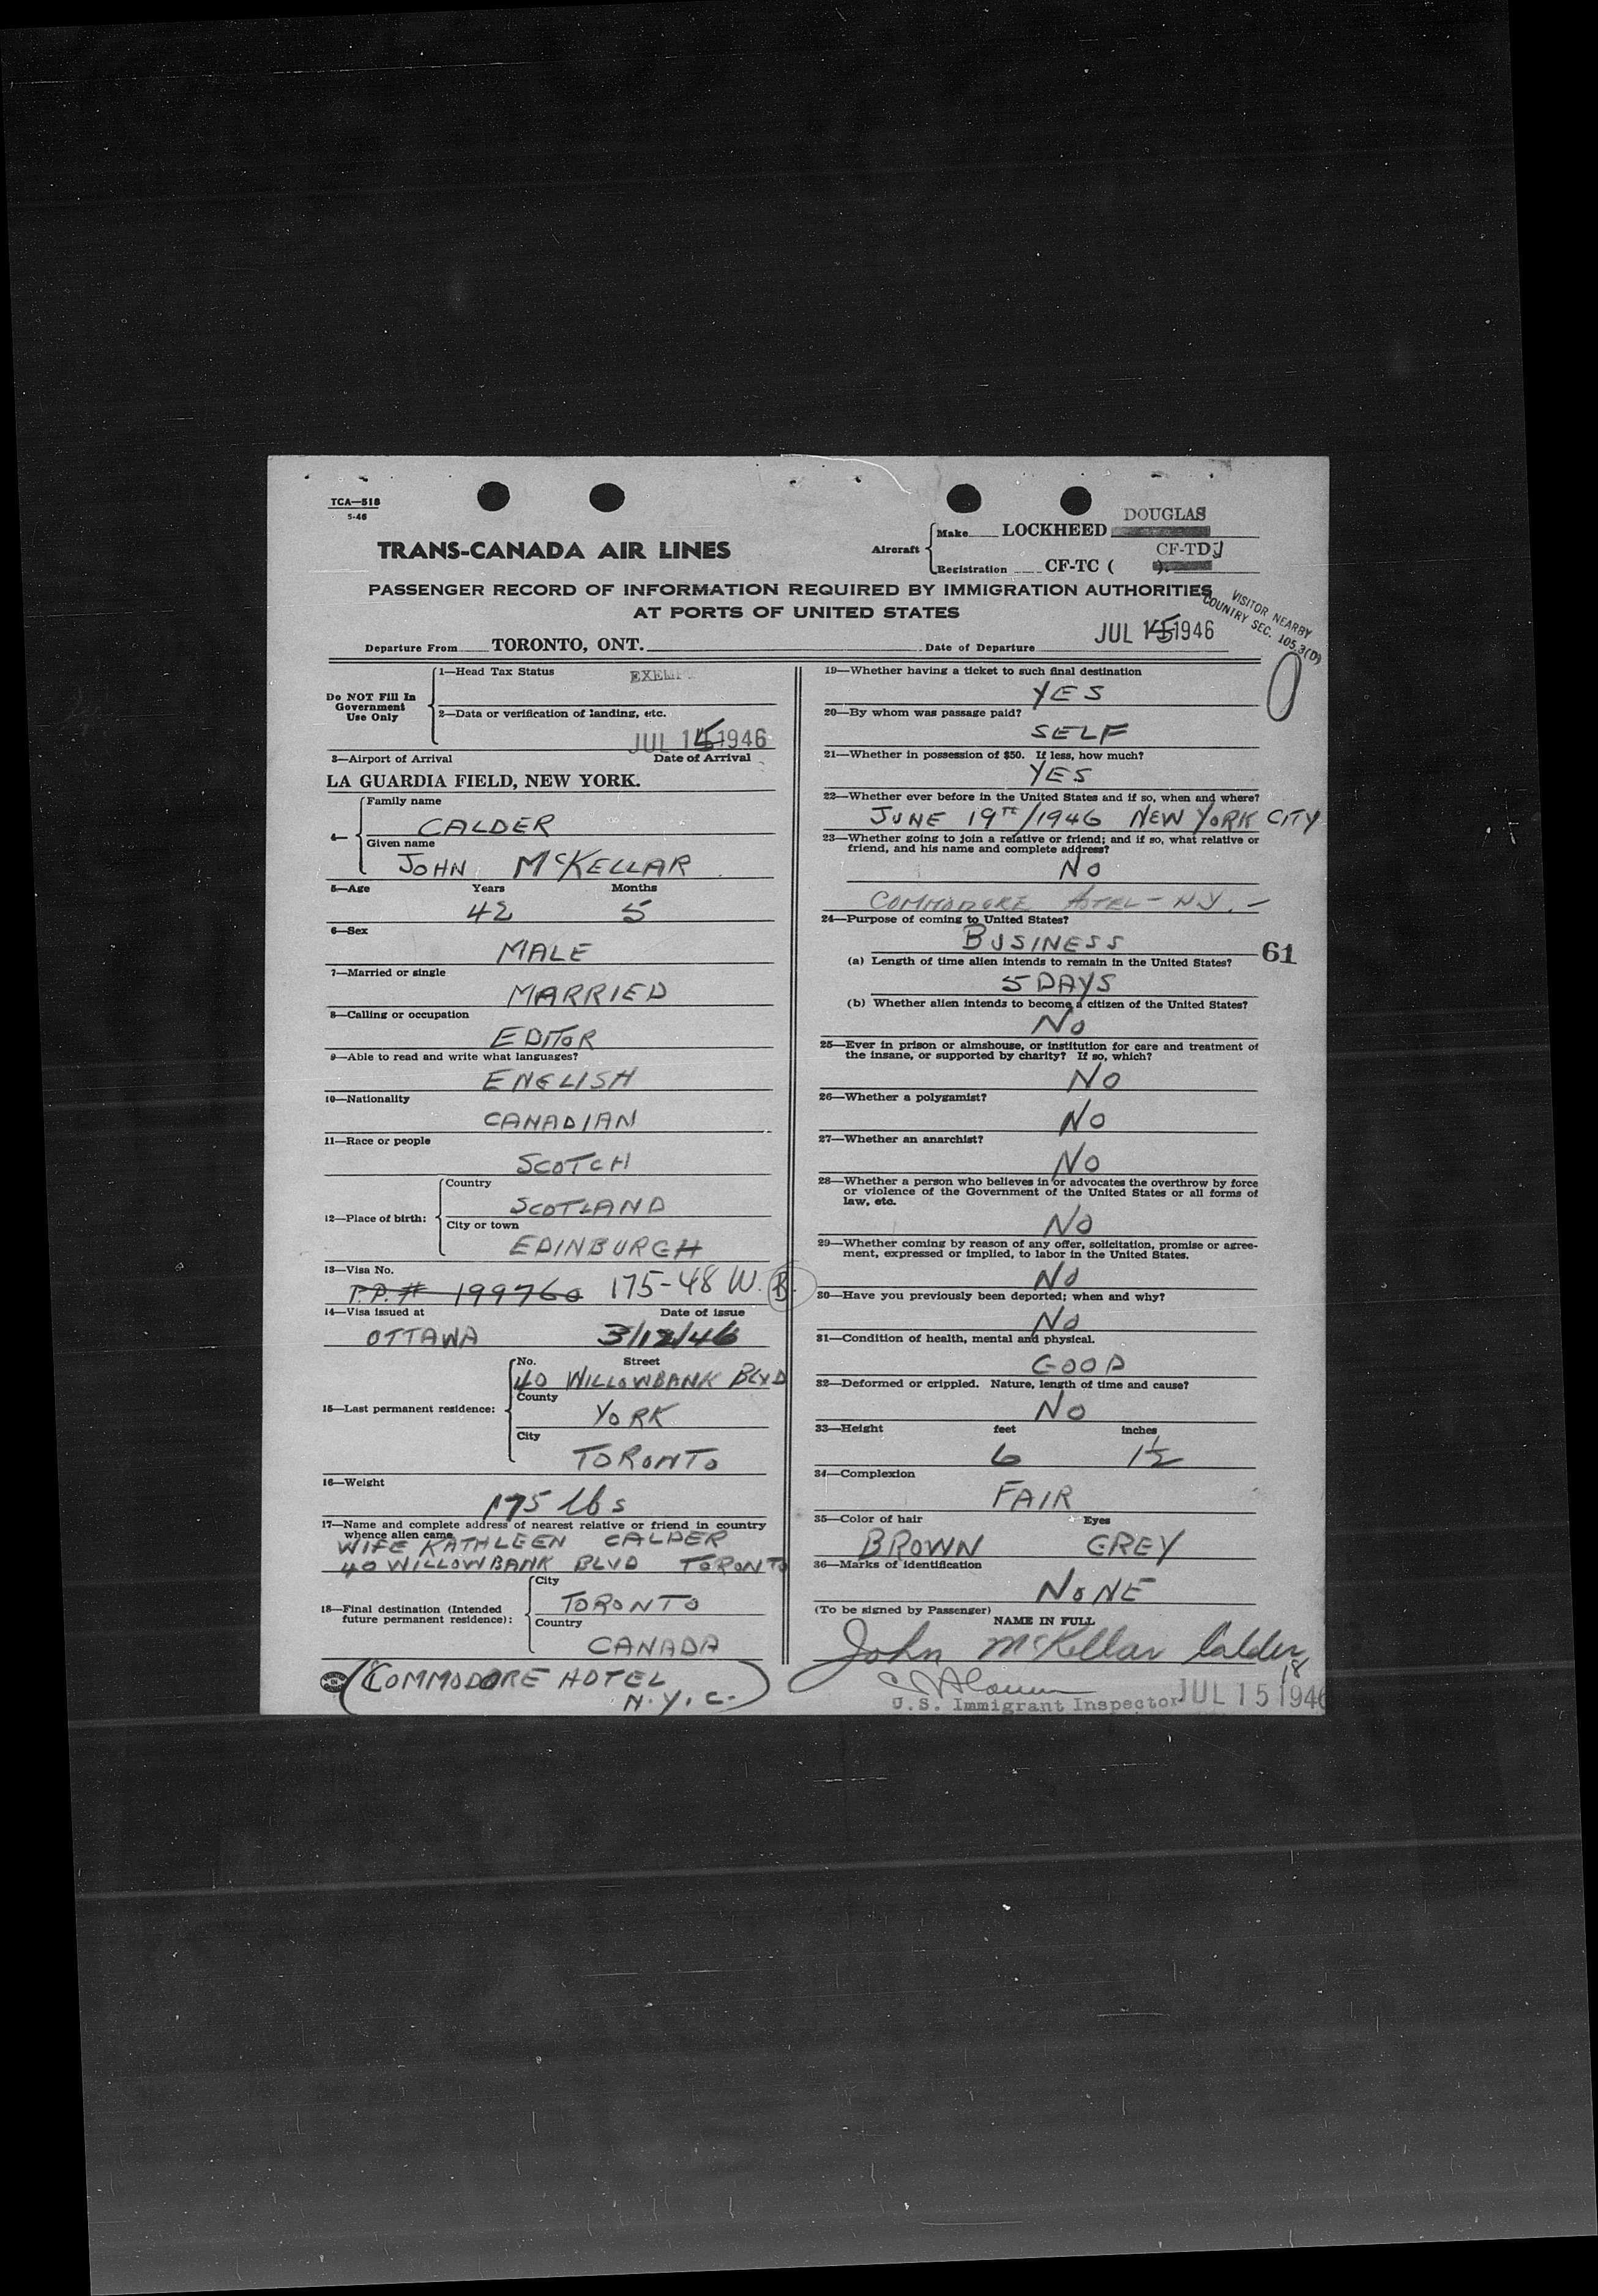 TCA—518
5-46
DOUGLAS
Make LOCKHEED
TRANS-CANADA AIR LINES
Aircraft
CF-TDJ
Registration CF-TC ( ).
PASSENGER RECORD OF INFORMATION REQUIRED BY IMMIGRATION AUTHORITIES
AT PORTS OF UNITED STATES
VISITOR NEARBY
COUNTRY SEC. 105.3(D)
Departure From TORONTO, ONT. Date of Departure JUL 15 1946
Do NOT Fill In
Government
Use Only
1—Head Tax Status EXEMPT
2—Data or verification of landing, etc.
JUL 15 1946
3—Airport of Arrival Date of Arrival
LA GUARDIA FIELD, NEW YORK.
4—
Family name
CALDER
Given name
JOHN McKELLAR
5—Age Years Months
42 5
6—Sex
MALE
7—Married or single
MARRIED
8—Calling or occupation
EDITOR
9—Able to read and write what languages?
ENGLISH
10—Nationality
CANADIAN
11—Race or people
SCOTCH
12—Place of birth:
Country
SCOTLAND
City or town
EDINBURGH
13—Visa No.
P.P.# 199760 175-48 W. B.
14—Visa issued at Date of issue
OTTAWA 3/12/46
15—Last permanent residence:
No. Street
40 WILLOWBANK BLVD
County
YORK
City
TORONTO
16—Weight
175 lbs
17—Name and complete address of nearest relative or friend in country
whence alien came
WIFE KATHLEEN CALDER
40 WILLOWBANK BLVD TORONTO
18—Final destination (Intended
future permanent residence):
City
TORONTO
Country
CANADA
(COMMODORE HOTEL
N.Y.C.)
19—Whether having a ticket to such final destination
YES
20—By whom was passage paid?
SELF
21—Whether in possession of $50. If less, how much?
YES
22—Whether ever before in the United States and if so, when and where?
JUNE 19TH/1946 NEW YORK CITY
23—Whether going to join a relative or friend; and if so, what relative or
friend, and his name and complete address?
NO
COMMODORE HOTEL - N.Y. -
24—Purpose of coming to United States?
BUSINESS
61
(a) Length of time alien intends to remain in the United States?
5 DAYS
(b) Whether alien intends to become a citizen of the United States?
NO
25—Ever in prison or almshouse, or institution for care and treatment of
the insane, or supported by charity? If so, which?
NO
26—Whether a polygamist?
NO
27—Whether an anarchist?
NO
28—Whether a person who believes in or advocates the overthrow by force
or violence of the Government of the United States or all forms of
law, etc.
NO
29—Whether coming by reason of any offer, solicitation, promise or agree-
ment, expressed or implied, to labor in the United States.
NO
30—Have you previously been deported; when and why?
NO
31—Condition of health, mental and physical.
GOOD
32—Deformed or crippled. Nature, length of time and cause?
NO
33—Height feet inches
6 1½
34—Complexion
FAIR
35—Color of hair Eyes
BROWN GREY
36—Marks of identification
NONE
(To be signed by Passenger)
NAME IN FULL
John McKellar Calder
18
U.S. Immigrant Inspector JUL 15 1946